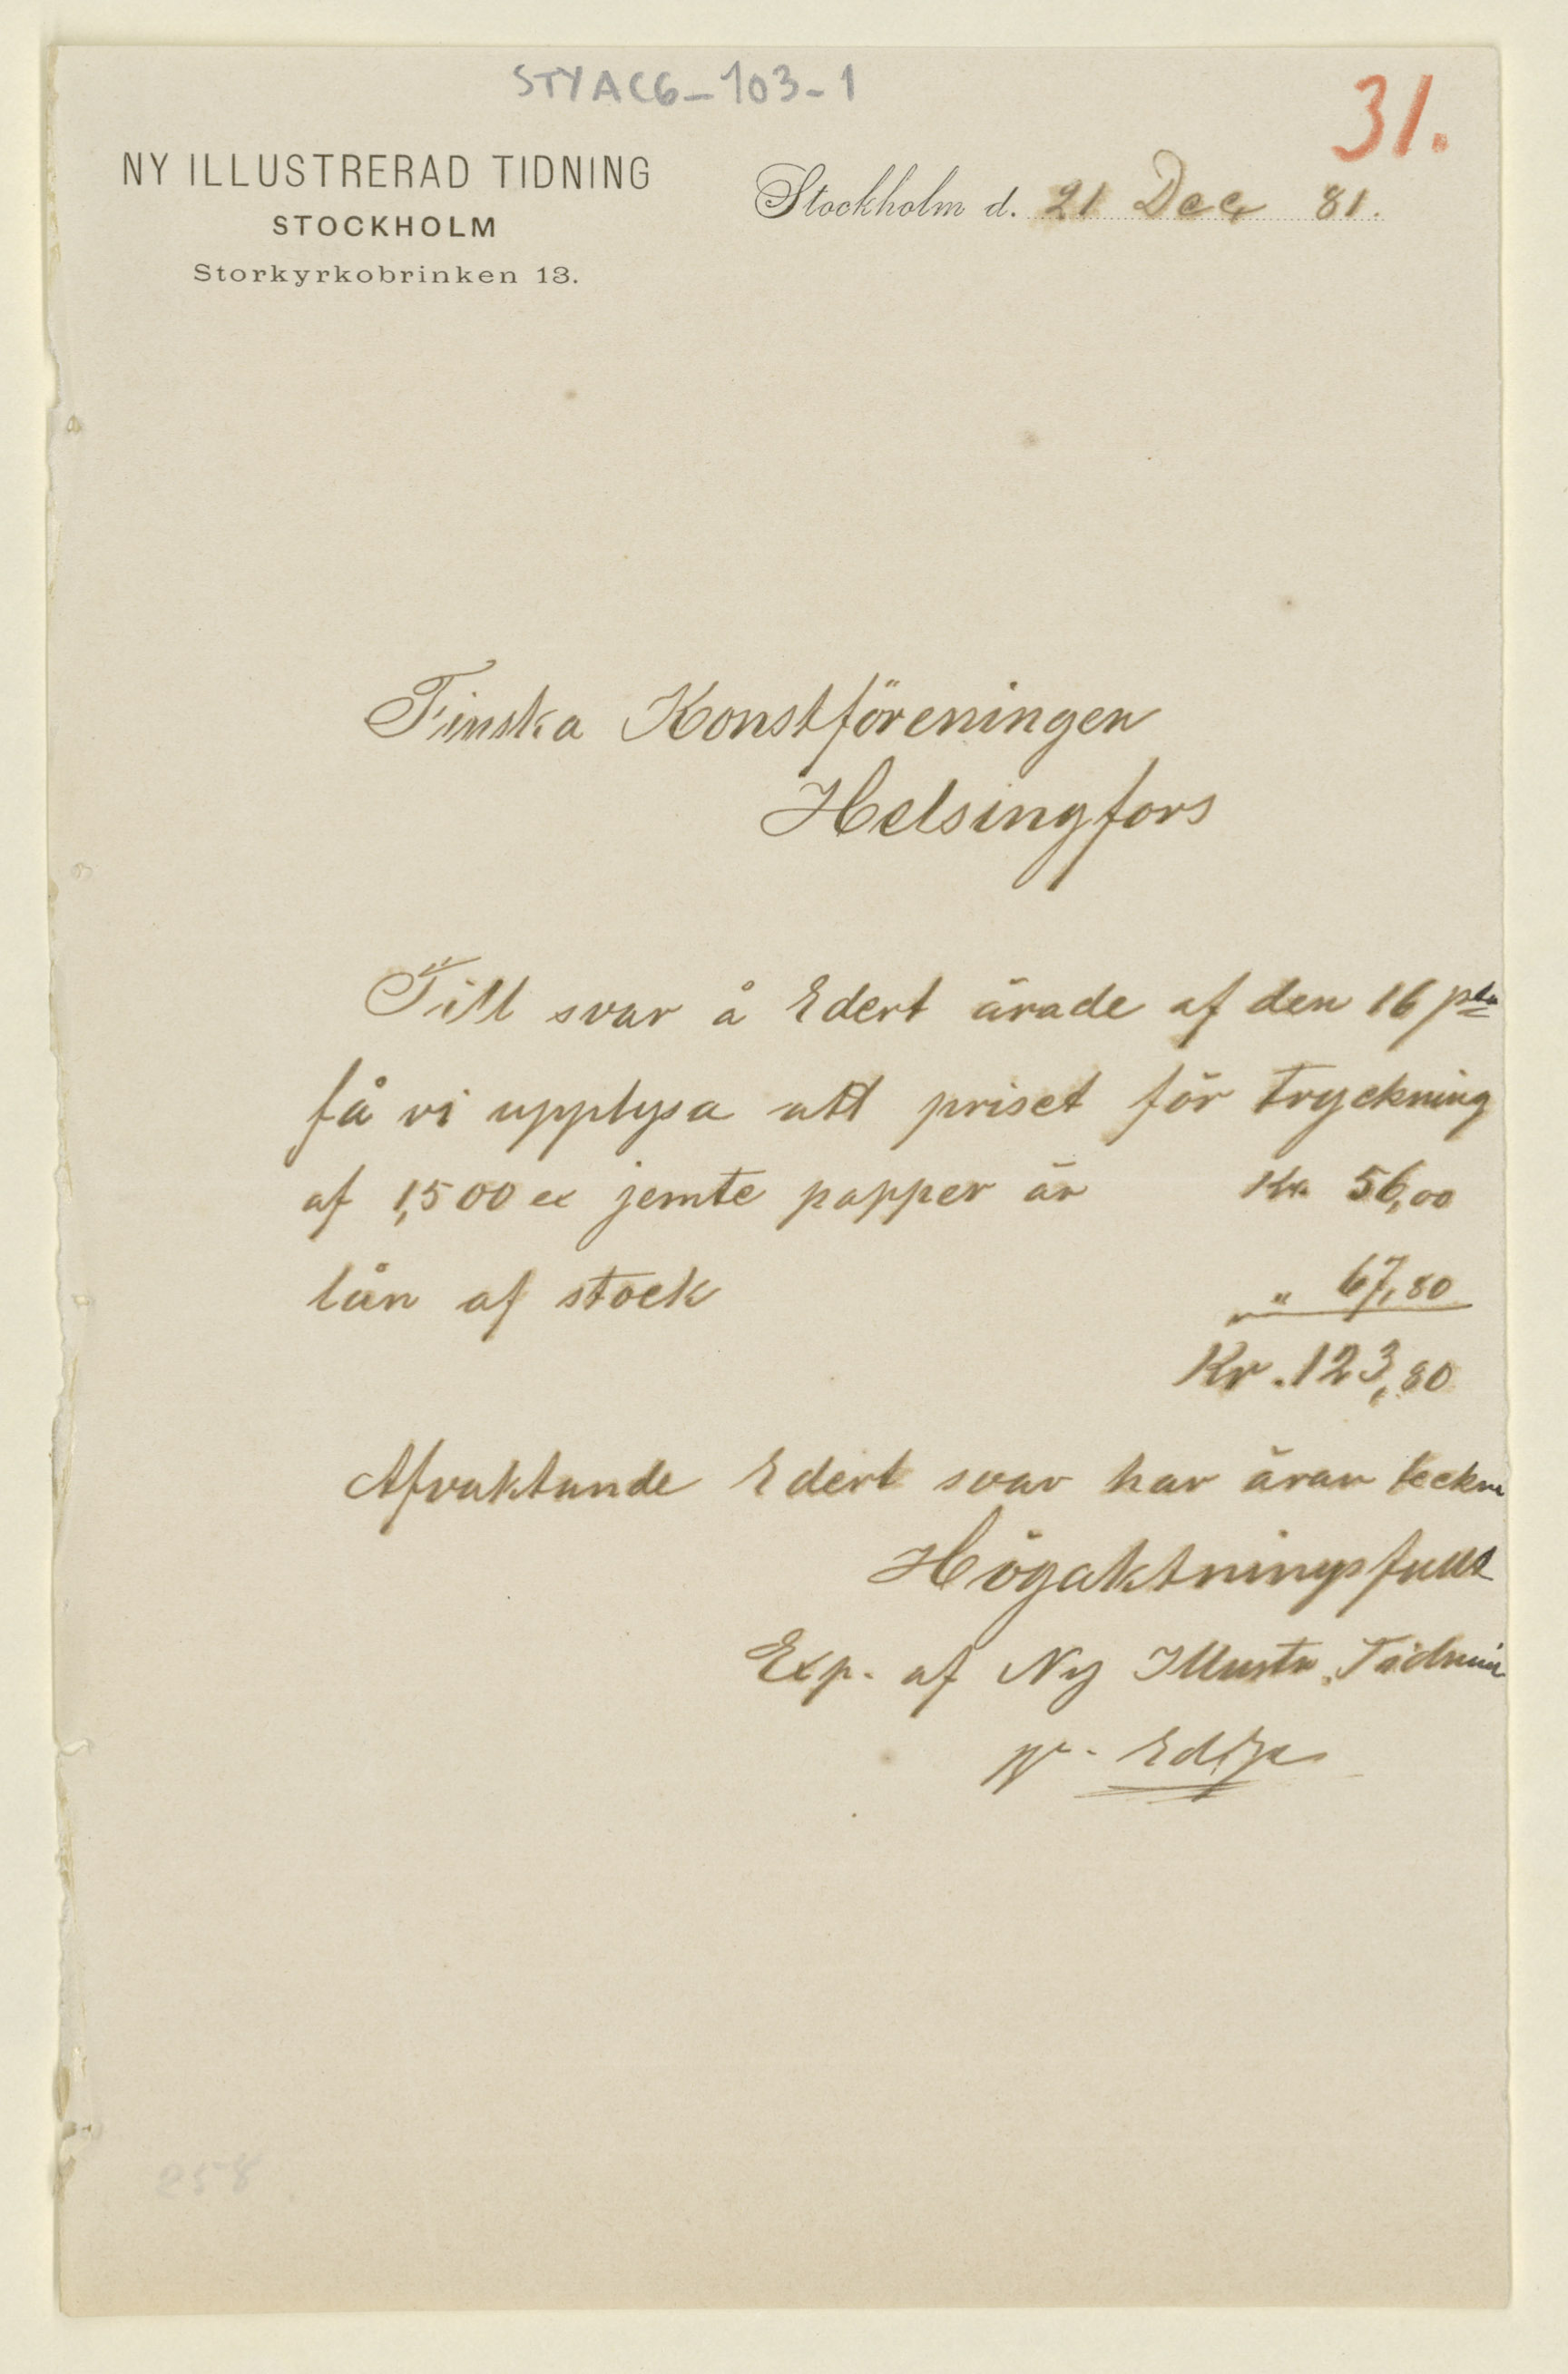 STYAC6-103-1
31.
NY ILLUSTRERAD TIDNING
STOCKHOLM
Storkyrkobrinken 13.
Stockholm d. 21 Dec 81.
Finska Konstföreningen
Helsingfors
Till svar å Edert ärade af den 16 pto
få vi upplysa att priset för tryckning
af 1,500 ex jemte papper är Kr. 56,00
lån af stock " 67,80
Kr. 123,80
Afvaktande Edert svar har äran teckna
Högaktningsfullt
Exp. af Ny Illustr. Tidnin
258